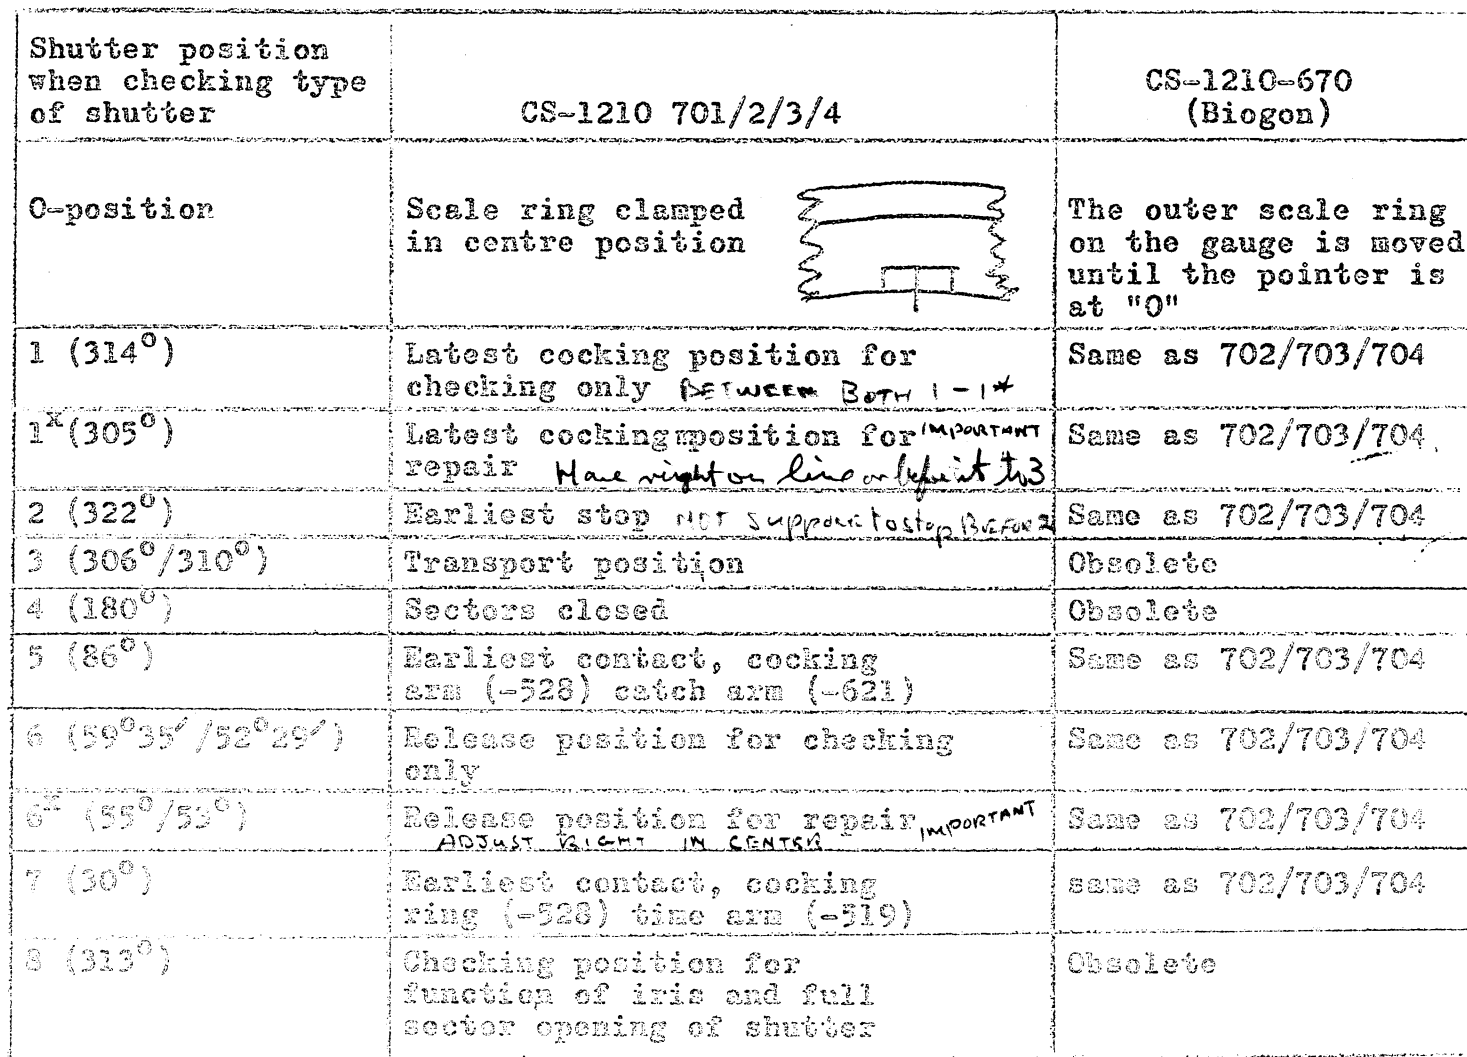 Shutter position
when checking type
of shutter
CS-1210 701/2/3/4
CS-1210-670
(Biogon)
O-position
Scale ring clamped
in centre position
The outer scale ring
on the gauge is moved
until the pointer is
at "O"
1 (314°)
Latest cocking position for
checking only BETWEEN BOTH 1-1*
Same as 702/703/704
1ˣ(305°)
Latest cockingmposition for IMPORTANT
repair Have right on line or before it to 3
Same as 702/703/704
2 (322°)
Earliest stop NOT suppose to stop BEFORE 2
Same as 702/703/704
3 (306°/310°)
Transport position
Obsolete
4 (180°)
Sectors closed
Obsolete
5 (86°)
Earliest contact, cocking
arm (-528) catch arm (-621)
Same as 702/703/704
6 (59°35′/52°29′)
Release position for checking
only
Same as 702/703/704
6ˣ (55°/53°)
Release position for repair IMPORTANT
ADJUST RIGHT IN CENTER
Same as 702/703/704
7 (30°)
Earliest contact, cocking
ring (-528) time arm (-519)
same as 702/703/704
8 (313°)
Checking position for
function of iris and full
sector opening of shutter
Obsolete